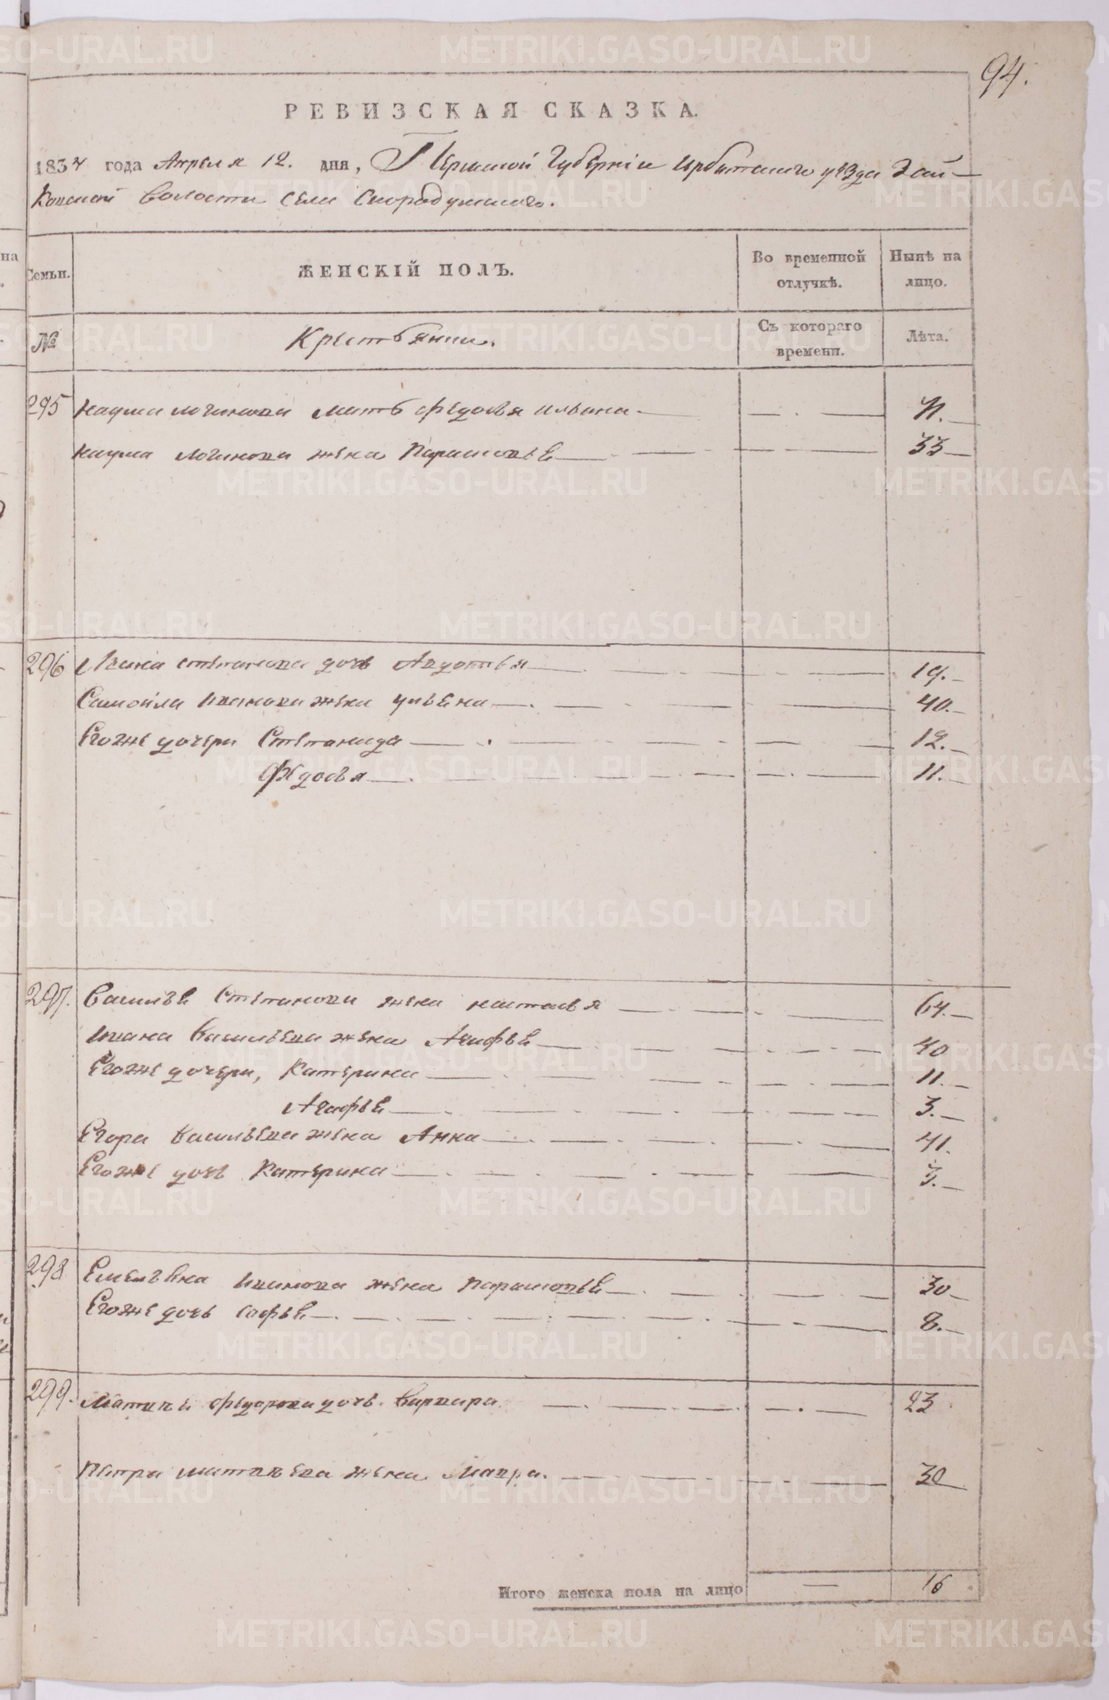 94.
РЕВИЗСКАЯ СКАЗКА.
1834 года Апреля 12. дня, Пермской Губернiи Ирбитскаго уѣзда Зай-
ковской Волости села Скородумскаго.
Семьи. ЖЕНСКIЙ ПОЛЪ. Во временной отлучкѣ. Нынѣ на лицо.
№ Крестьянки. Съ котораго времени. Лѣта.
295 Наума Логинова мать Федосья Ильина 71.
Наума Логинова жена Парасковья 33
296 Лвина Степанова дочь Авдотья 19.
Самойла Иванова жена Ульяна 40.
Егоже дочери Степанида 12.
Федосья 11.
297. Василья Степанова жена Настасья 64.
Ивана Васильева жена Агафья 40
Егоже дочери, Катерина 11.
Агафья 3.
Егора Васильева жена Анна 41.
Егоже дочь Катерина 3.
298 Емельяна Иванова жена Парасковья 30
Егоже дочь Софья 8.
299. Матвея Федорова дочь Варвара 23
Петра Матвѣева жена Мавра. 30
Итого женска пола на лицо — 16
METRIKI.GASO-URAL.RU